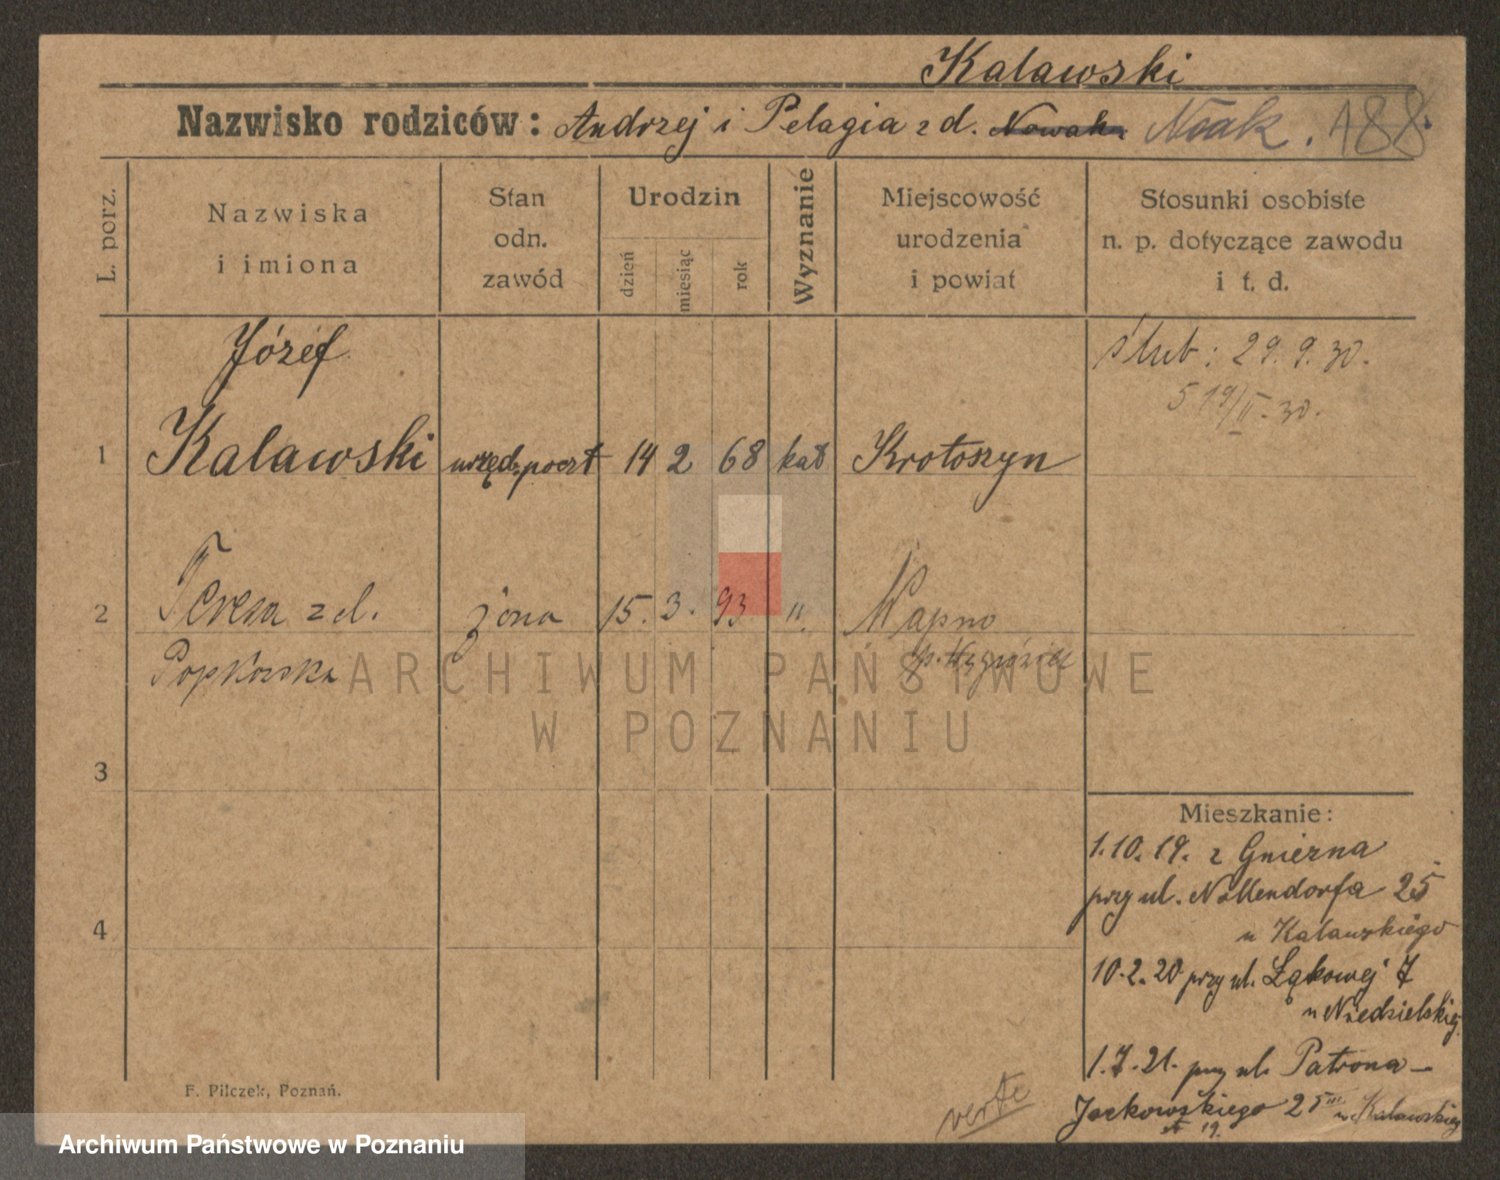 Kalawski
Nazwisko rodziców: Andrzej i Pelagia z d. Nowak Noak. 188
L. porz.
Nazwiska
i imiona
Stan
odn.
zawód
Urodzin
dzień
miesiąc
rok
Wyznanie
Miejscowość
urodzenia
i powiat
Stosunki osobiste
n. p. dotyczące zawodu
i t. d.
Józef
ślub: 29. 9. 30.
1 Kalawski urzęd. poczt 14 2 68 kat Krotoszyn
2 Teresa z d. żona 15. 3. 93 " Wapno
Popkowska
ARCHIWUM PAŃSTWOWE
W POZNANIU
3
4
Mieszkanie:
1.10.19. z Gniezna
przy ul. Nollendorfa 25
u Kalawskiego
10.2.20 przy ul. Łąkowej 7
u Niedzielskiej
1.7.21. przy ul. Patrona-
Jackowskiego 25 III u Kalawskiej
19.
verte
F. Pilczek, Poznań.
Archiwum Państwowe w Poznaniu